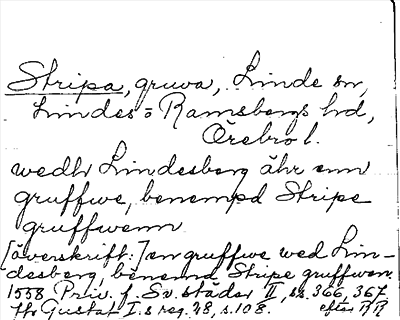 Stripa, gruva, Linde sn,
Lindes= o Ramsbergs hd,
Örebro l.
wedh Lindesberg ähr enn
gruffwe, benempd Stripe
gruffwenn
[överskrift:] en gruffwe wed Lin-
desberg, benemd Stripe gruffwen.
1558 Priv. f. Sv. städer II, ss. 366, 367
ffr Gustaf I.s reg. 28, s. 108. efter RR